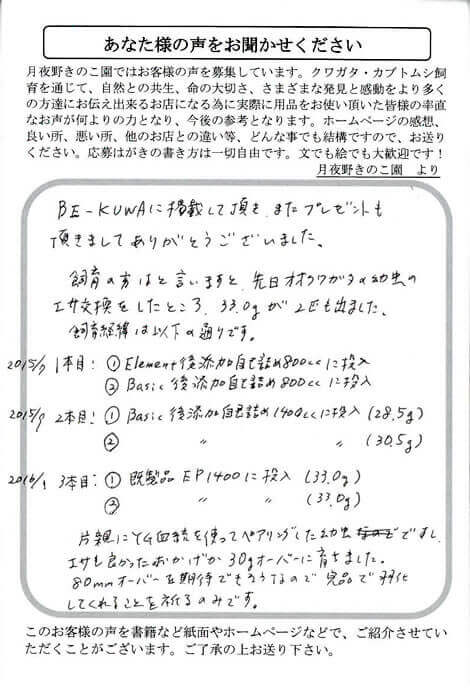 あなた様の声をお聞かせください
月夜野きのこ園ではお客様の声を募集しています。クワガタ・カブトムシ飼
育を通じて、自然との共生、命の大切さ、さまざまな発見と感動をより多く
の方達にお伝え出来るお店になる為に実際に用品をお使い頂いた皆様の率直
なお声が何よりの力となり、今後の参考となります。ホームページの感想、
良い所、悪い所、他のお店との違い等、どんな事でも結構ですので、お送り
ください。応募はがきの書き方は一切自由です。文でも絵でも大歓迎です！
月夜野きのこ園　より
BE-KUWAに掲載して頂き、またプレゼントも
頂きましてありがとうございました。
飼育の方はと言いますと、先日オオクワガタの幼虫の
エサ交換をしたところ、33.0gが2匹も出ました。
飼育経緯は以下の通りです。
2015/7 1本目：① Element後添加自己詰め800ccに投入
② Basic後添加自己詰め800ccに投入
2015/9 2本目：① Basic後添加自己詰め1400ccに投入 (28.5g)
② 〃 〃 (30.5g)
2016/1 3本目：① 既製品 EP1400に投入 (33.0g)
② 〃 〃 (33.0g)
片親にYG血統を使ってペアリングした幼虫ですし、
エサも良かったおかげか30gオーバーに育ちました。
80mmオーバーを期待でもろうなので完品で羽化
してくれることを祈るのみです。
このお客様の声を書籍など紙面やホームページなどで、ご紹介させてい
ただくことがございます。ご了承の上お送り下さい。